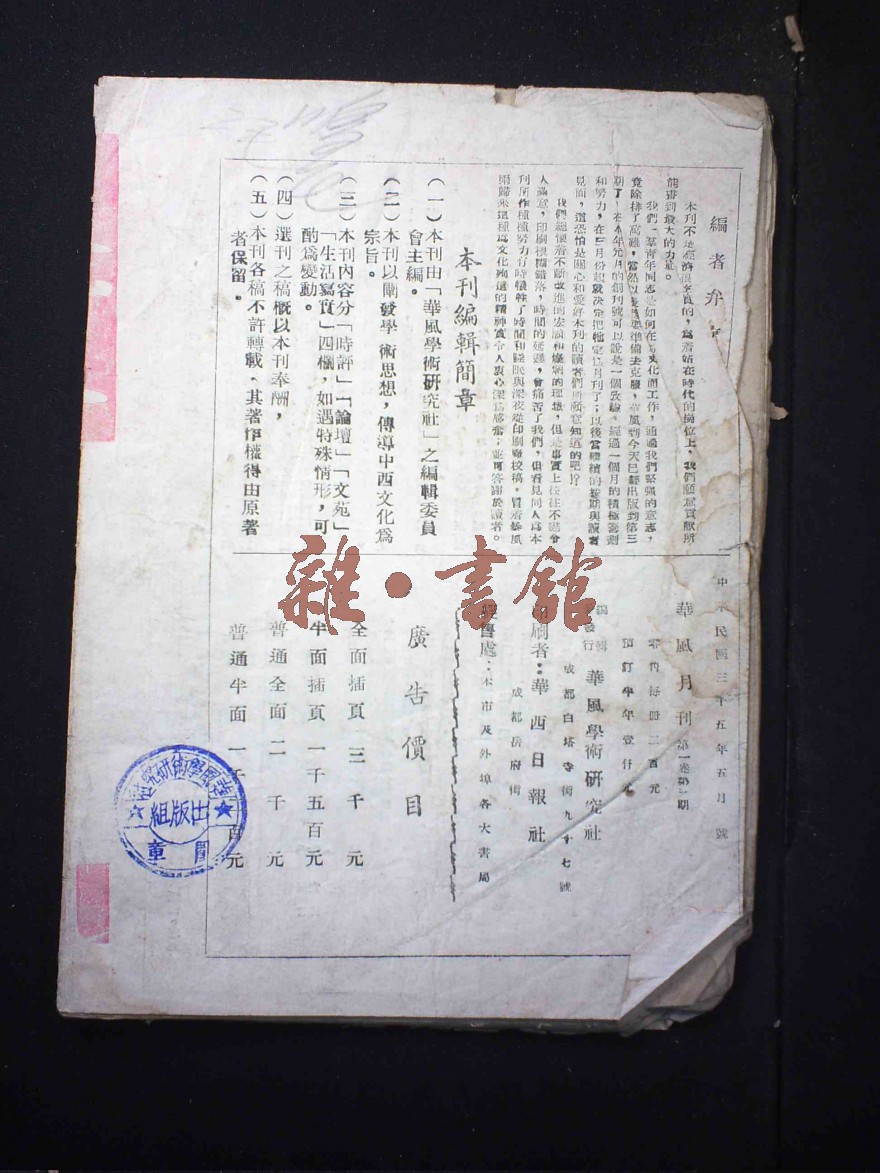 編者弁
本刊不是經濟
的，爲着站在時代的崗位上，我們願意貢獻所
能盡到最大的力量。
我們一羣靑年同志是如何在爲文化而工作，通過我們堅强的意志，
竟除排了萬難，當然以
準備去克服，華風到今天已經出版到第三
期了，在本年元月的創刊號可以說是一個
經過一個月的積極籌劃
和努力，在三月份起厥決定把牠定爲月刊了；以後當繼續的按期與讀者
見面，這恐怕是關心和愛好本刊的讀者們所願意知道的吧！？
我們總懷着不斷改進的宏願和
的理想，但是事實上往往不
人滿意，印刷模糊錯落，時間的延遲，會痛苦了我們，但看見同人爲本
刊所作種種努力有時犧牲了時間和睡眠與深夜從印刷廠校稿，冒着暴風
雨歸來這種爲文化殉道的精神實令人衷心深爲感奮；並可答謝於讀者。
本刊編輯簡章
（一）本刊由「華風學術硏究社」之編輯委員
會主編。
（二）本刊以闡發學術思想，傳導中西文化爲
宗旨。
（三）本刊內容分「時評」「論壇」「文苑」
「生活寫實」四欄，如遇特殊情形，可
酌爲變動。
（四）選刊之稿槪以本刊奉酬，
（五）本刊各稿不許轉載，其著作權得由原著
者保留。
中華民國三十五年五月號
華風月刊 第一卷第
期
零售每册二百元
預訂半年壹仟元
編輯
發行 華風學術硏究社
成都白塔寺街九十七號
印刷者：華西日報社
成都岳府街
經售處：本市及外埠各大書局
廣告價目
全面插頁 三千元
半面插頁 一千五百元
普通全面 二千元
普通半面 一千
百元
華風學術硏究社
出版組
圖章
雜·書館